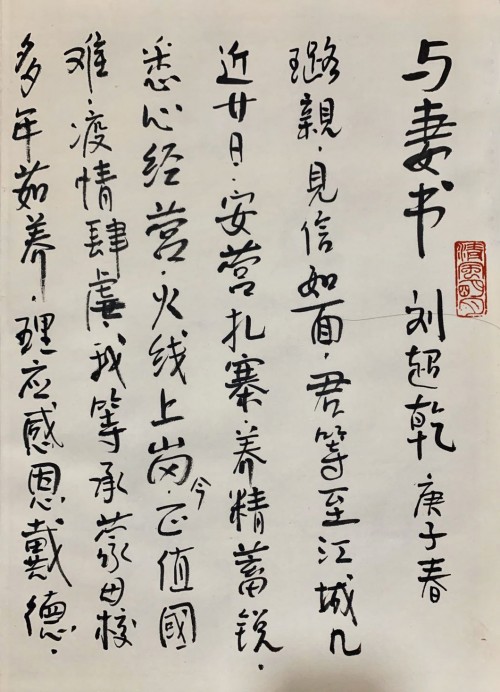 与妻书 刘超乾 庚子春
清风明月
璐親，見信如面，君等至江城几
近廿日，安营扎寨，养精蓄锐，
悉心经营，火线上岗，今正值國
难，疫情肆虐，我等承蒙母校
多年茹养，理应感恩戴德，